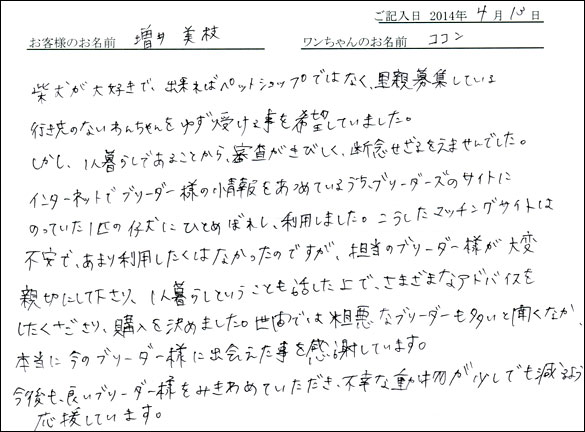 ご記入日 2014年 4月 13日
お客様のお名前 増井 美枝 ワンちゃんのお名前 ココン
柴犬が大好きで、出来ればペットショップではなく、里親募集している
行き先のないわんちゃんをゆずり受ける事を希望していました。
しかし、1人暮らしであることから、審査がきびしく、断念せざるをえませんでした。
インターネットでブリーダー様の情報をあつめているうち、ブリーダーズのサイトに
のっていた1匹の仔犬にひとめぼれし、利用しました。こうしたマッチングサイトは
不安で、あまり利用したくはなかったのですが、担当のブリーダー様が大変
親切にして下さり、1人暮らしということも話した上で、さまざまなアドバイスを
してくださり、購入を決めました。世間では粗悪なブリーダーも多いと聞くなか、
本当に今のブリーダー様に出会えた事を感謝しています。
今後も、良いブリーダー様をみきわめていただき、不幸な動物が少しでも減るよう
応援しています。